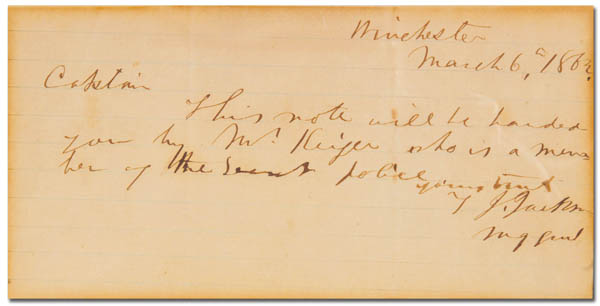 Winchester
March 6, 1862.
Captain
This note will be handed
you by Mr. Keiger who is a mem
ber of the secret police
yours truly
T. J. Jackson
Maj Genl